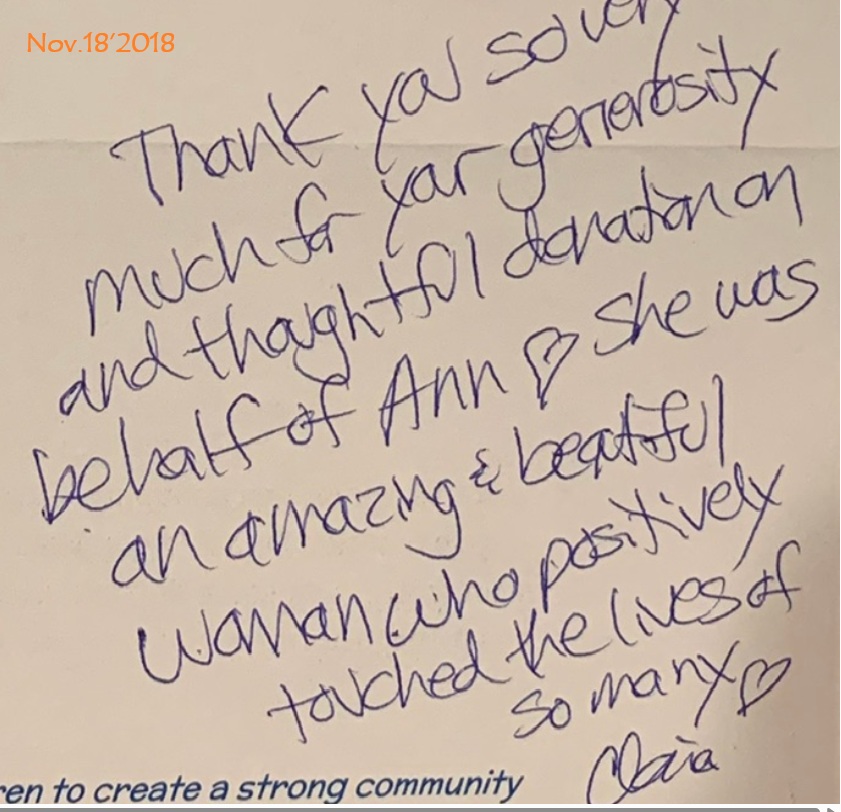 Nov.18'2018
Thank you so very
much for your generosity
and thoughtful donation on
behalf of Ann ♡ She was
an amazing & beautiful
woman who positively
touched the lives of
so many ♡
ren to create a strong community